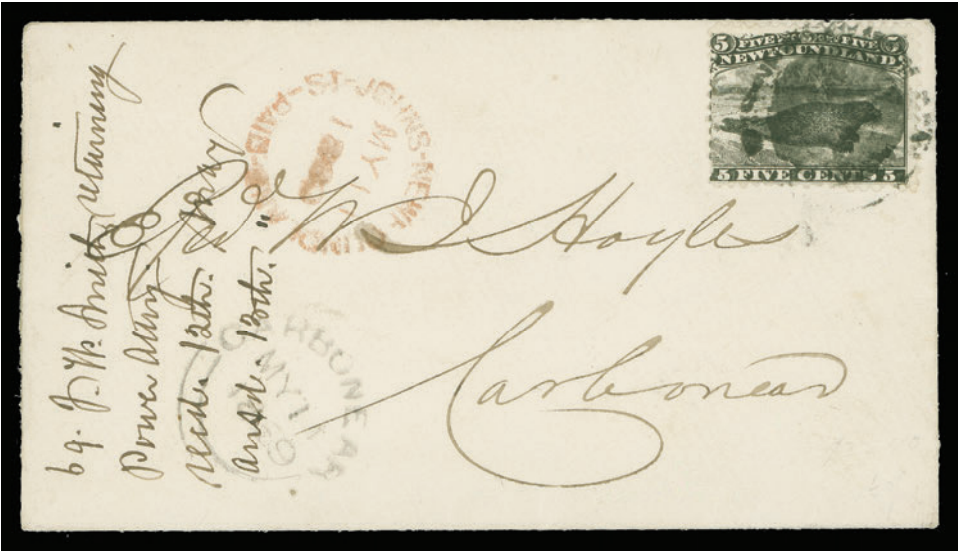 5 FIVE FIVE 5
NEWFOUNDLAND
5 FIVE CENTS 5
ST-JOHNS-NEW PAID
MY 1
W J Hoyles
Carbonear
CARBONEAR
MY 1
69
69. J. W. Smith returning
Power Atty.
recd. 12th. May
ansd. 13th. "